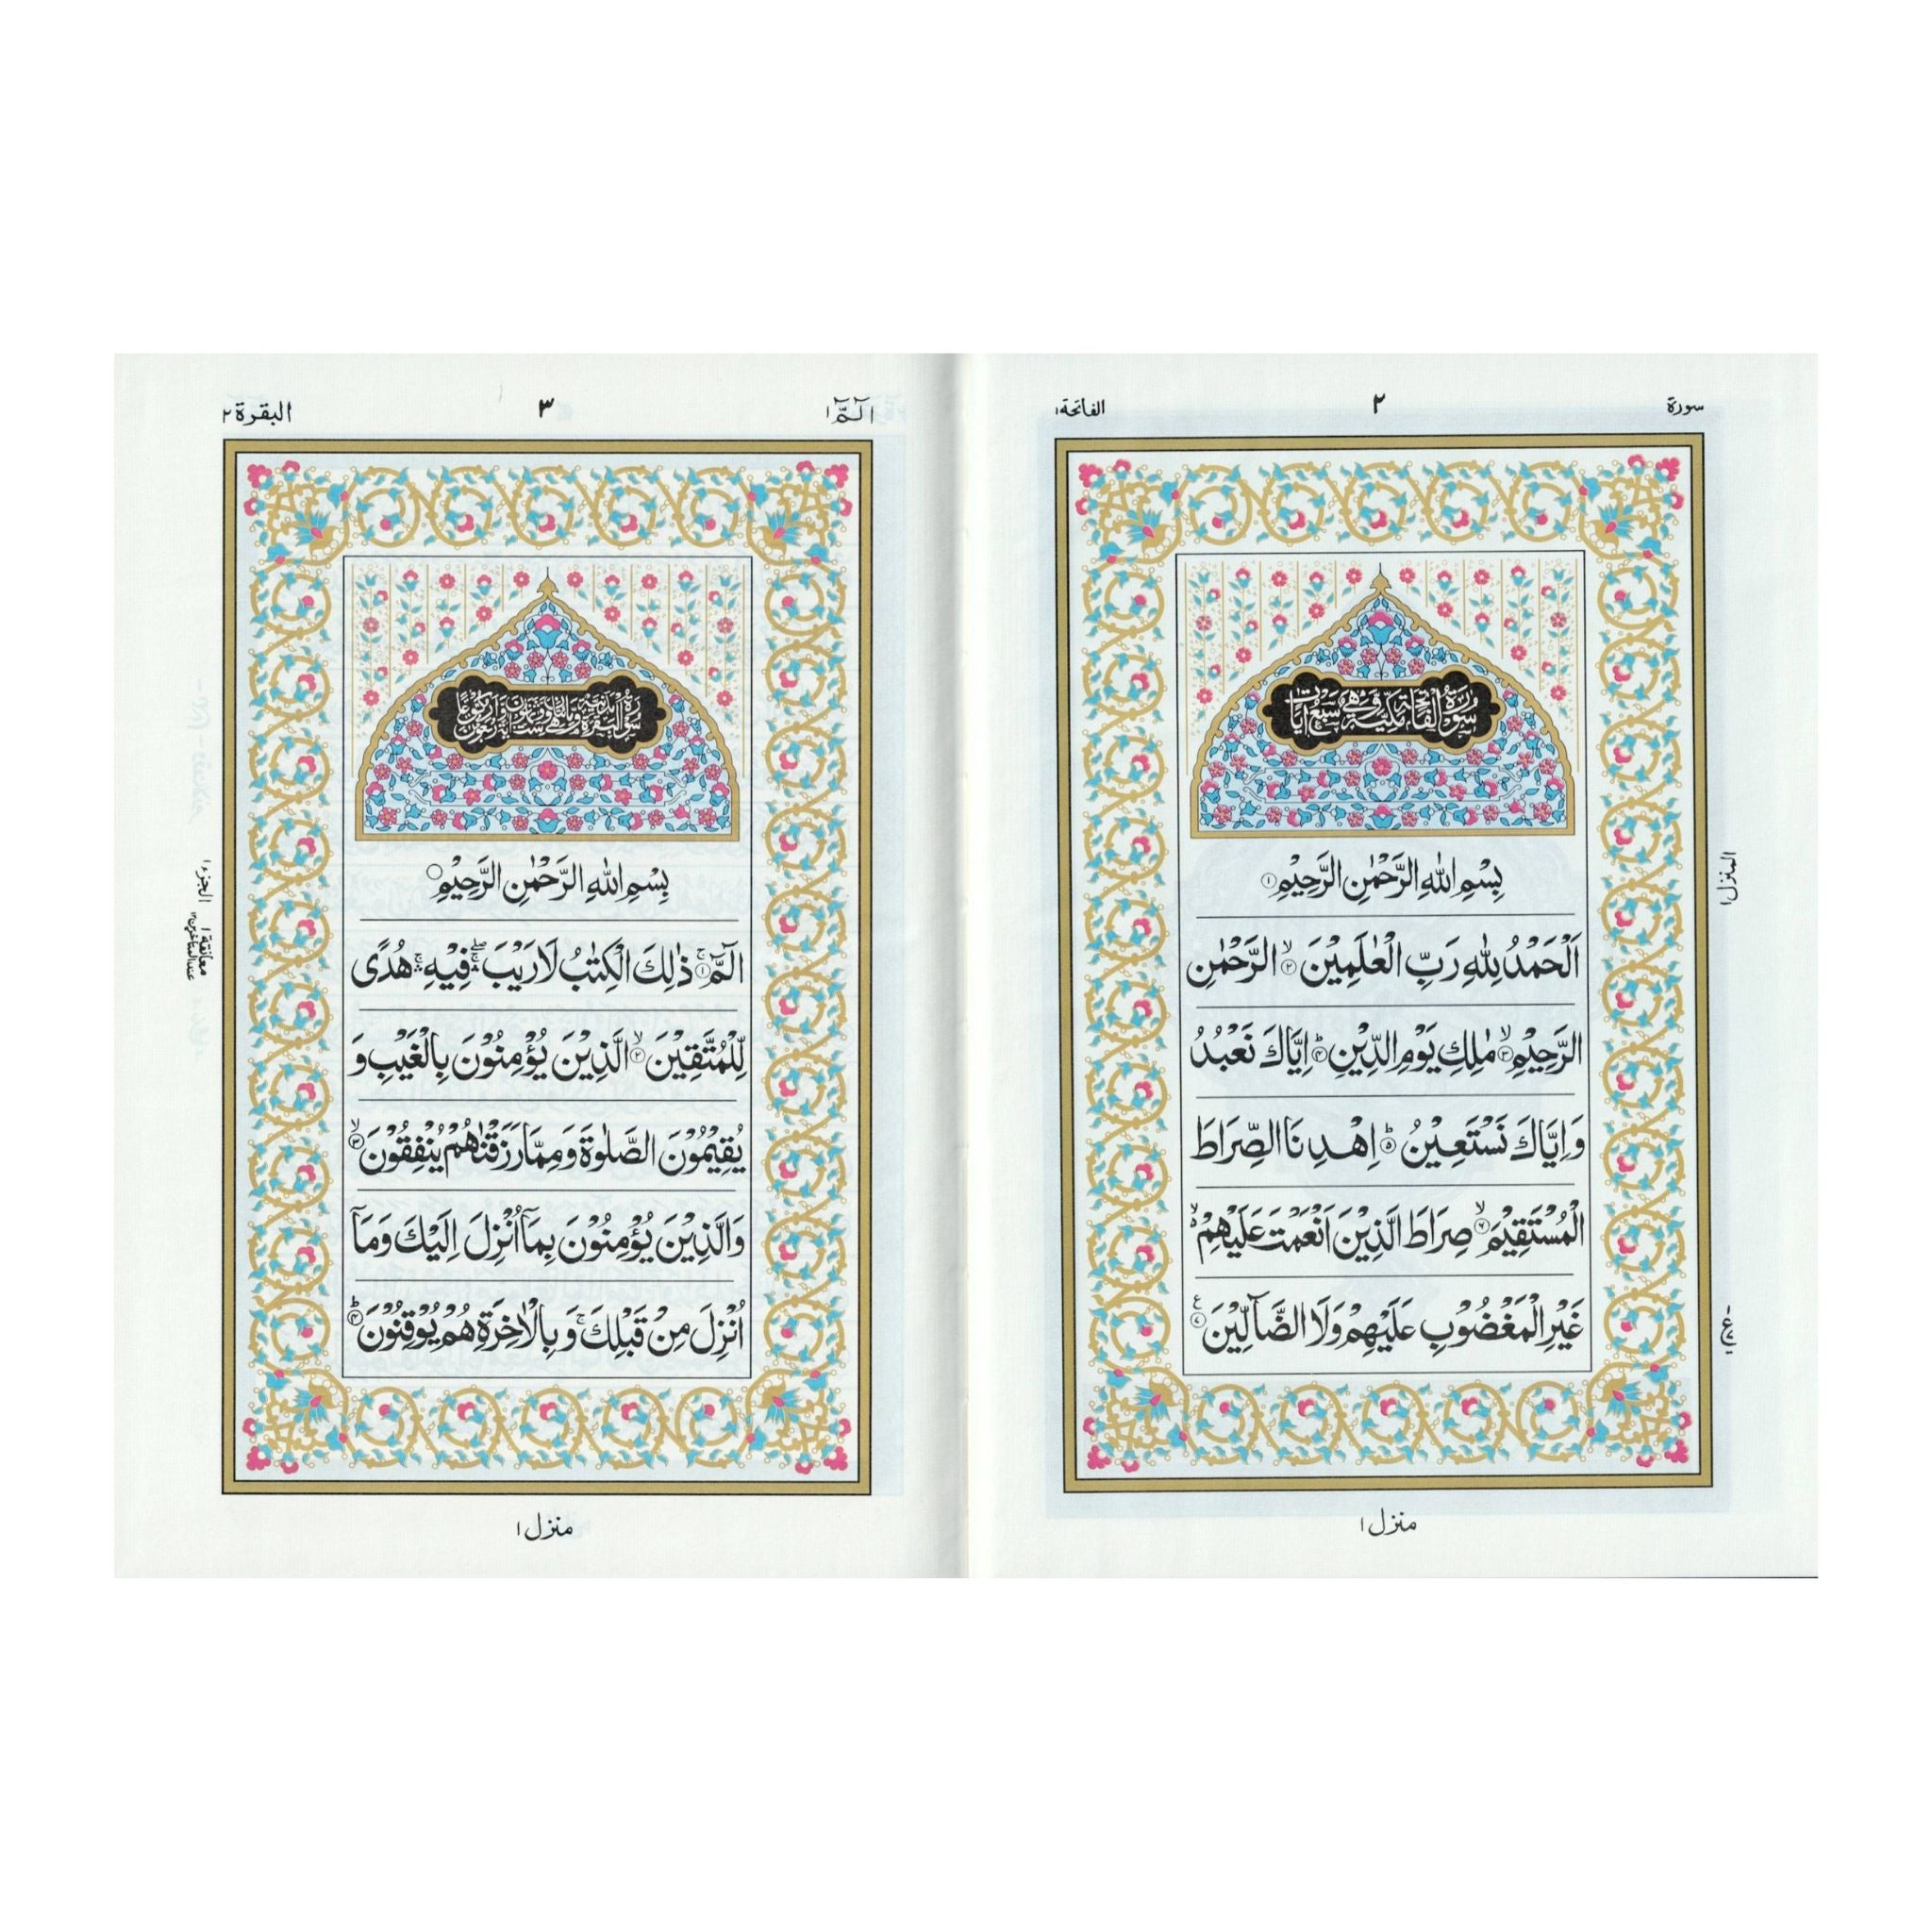 سورة ٢ الفاتحة ١
سُوْرَةُ الْفَاتِحَةِ مَكِّيَّةٌ وَّهِيَ سَبْعُ اٰيَاتٍ
بِسْمِ اللّٰهِ الرَّحْمٰنِ الرَّحِيْمِ ۝١
اَلْحَمْدُ لِلّٰهِ رَبِّ الْعٰلَمِيْنَ ۙ۝٢ الرَّحْمٰنِ
الرَّحِيْمِ ۙ۝٣ مٰلِكِ يَوْمِ الدِّيْنِ ؕ۝٤ اِيَّاكَ نَعْبُدُ
وَاِيَّاكَ نَسْتَعِيْنُ ؕ۝٥ اِهْدِنَا الصِّرَاطَ
الْمُسْتَقِيْمَ ۙ۝٦ صِرَاطَ الَّذِيْنَ اَنْعَمْتَ عَلَيْهِمْ ۙ
غَيْرِ الْمَغْضُوْبِ عَلَيْهِمْ وَلَا الضَّآلِّيْنَ ۝٧
المنزل ١
منزل ١
الٓمّٓ ١ ٣ البقرة ٢
بِسْمِ اللّٰهِ الرَّحْمٰنِ الرَّحِيْمِ ۝
الٓمّٓ ۚ۝١ ذٰلِكَ الْكِتٰبُ لَا رَيْبَ ۛۖ فِيْهِ ۛۚ هُدًى
لِّلْمُتَّقِيْنَ ۙ۝٢ الَّذِيْنَ يُؤْمِنُوْنَ بِالْغَيْبِ وَ
يُقِيْمُوْنَ الصَّلٰوةَ وَمِمَّا رَزَقْنٰهُمْ يُنْفِقُوْنَ ۙ۝٣
وَالَّذِيْنَ يُؤْمِنُوْنَ بِمَآ اُنْزِلَ اِلَيْكَ وَمَآ
اُنْزِلَ مِنْ قَبْلِكَ ۚ وَبِالْاٰخِرَةِ هُمْ يُوْقِنُوْنَ ؕ۝٤
الجزء ١
معانقة ١
عند المتأخرين ١٢
منزل ١